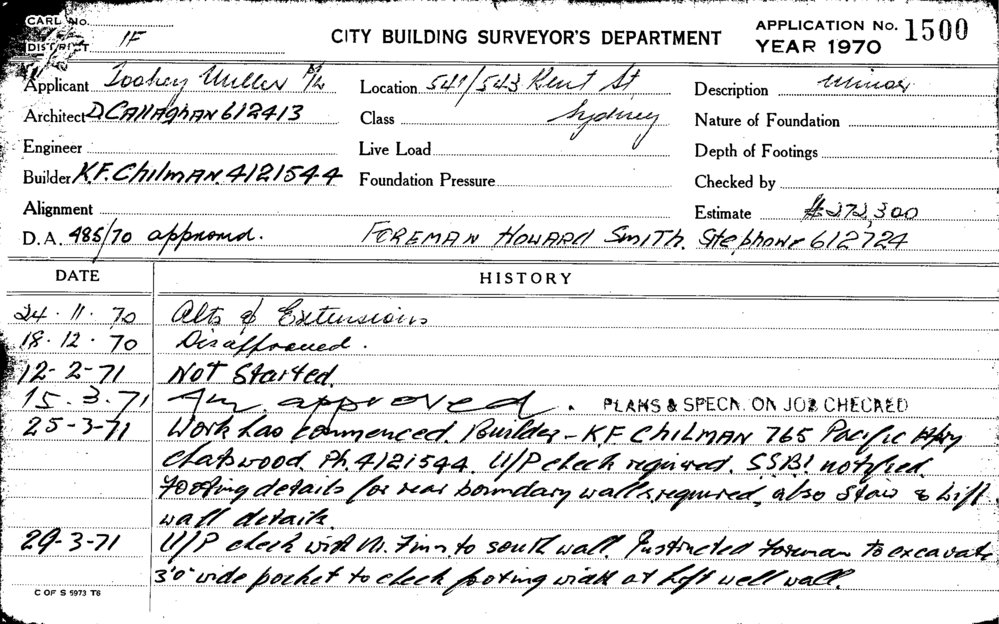 CARD No.
DISTRICT 1F
CITY BUILDING SURVEYOR'S DEPARTMENT
APPLICATION No. 1500
YEAR 1970
Applicant Toohey Miller P/L
Location 541/543 Kent St
Sydney
Description Minor
Architect D CALLAGHAN 612413
Class
Nature of Foundation
Engineer
Live Load
Depth of Footings
Builder K.F. Chilman. 4121544
Foundation Pressure
Checked by
Alignment
Estimate $272,300
D.A. 485/70 approved.
FOREMAN HOWARD SMITH. Site phone 612724
DATE HISTORY
24.11.70 Alts & Extensions
18.12.70 Disapproved.
12-2-71 Not Started.
15.3.71 Am. approved. PLANS & SPECN. ON JOB CHECKED
25-3-71 Work has commenced. Builder - K.F CHILMAN 765 Pacific Hwy
Chatswood. Ph. 4121544. U/P check required. SSBI notified
Footing details for rear boundary walls required, also Stair & Lift
wall details.
29-3-71 U/P check with to south wall. Instructed Foreman to excavate
3'0" wide pocket to check footing width at Lift well wall.
C OF S 5973 T6